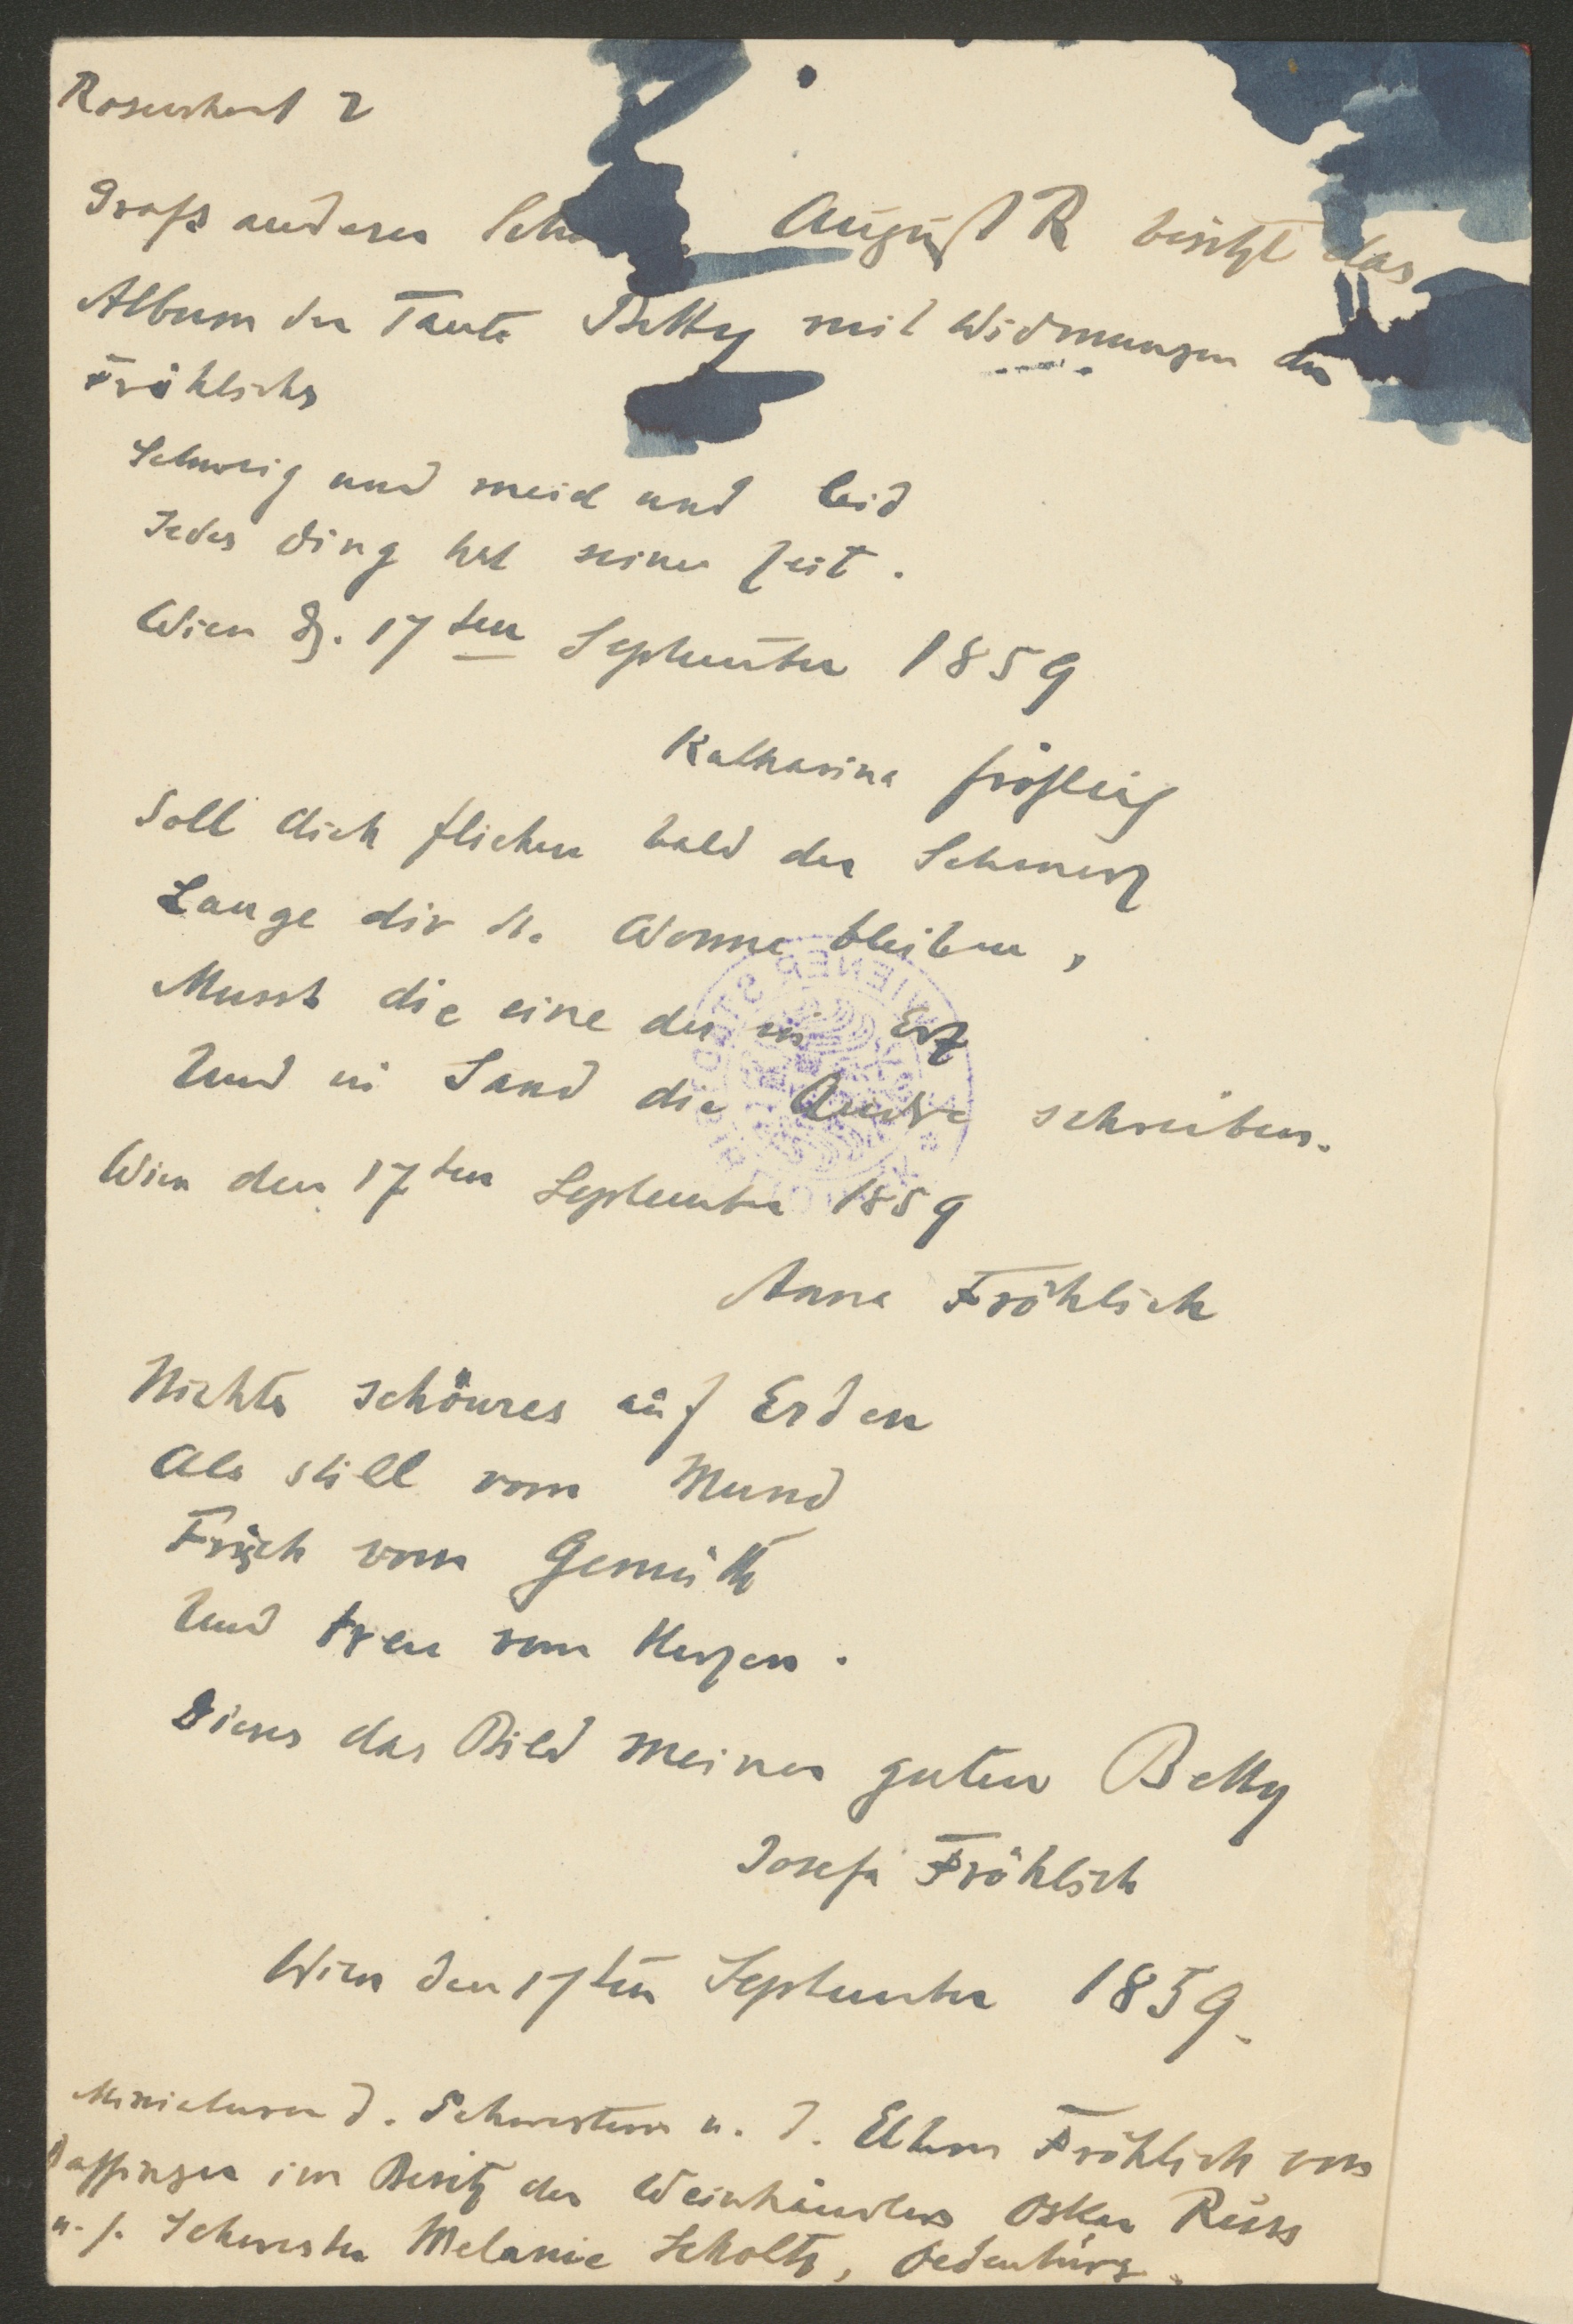 Rosenthal 2
Grafs anderer Sch August R besitzt das
Album der Tante Betty mit Widmungen der
Fröhlichs
Schweig und meid und leid
Jedes Ding hat seine Zeit.
Wien d. 17ten September 1859
Katharina Fröhlich
Soll dich fliehen bald der Schmerz
Lange dir die Wonne bleiben,
Musst die eine du in Erz
Und in Sand die Andre schreiben.
Wien den 17ten September 1859
Anna Fröhlich
Nichts schönres auf Erden
Als still vom Mund
Frisch vom Gemüth
Und treu vom Herzen.
Dieses das Bild meiner guten Betty
Josefa Fröhlich
Wien den 17ten September 1859.
Miniaturen d. Schwestern u. d. Eltern Fröhlich von
Daffinger im Besitz des Weinhändlers Oskar Russ
u. s. Schwester Melanie Scholtz, Oedenburg.
WIENER